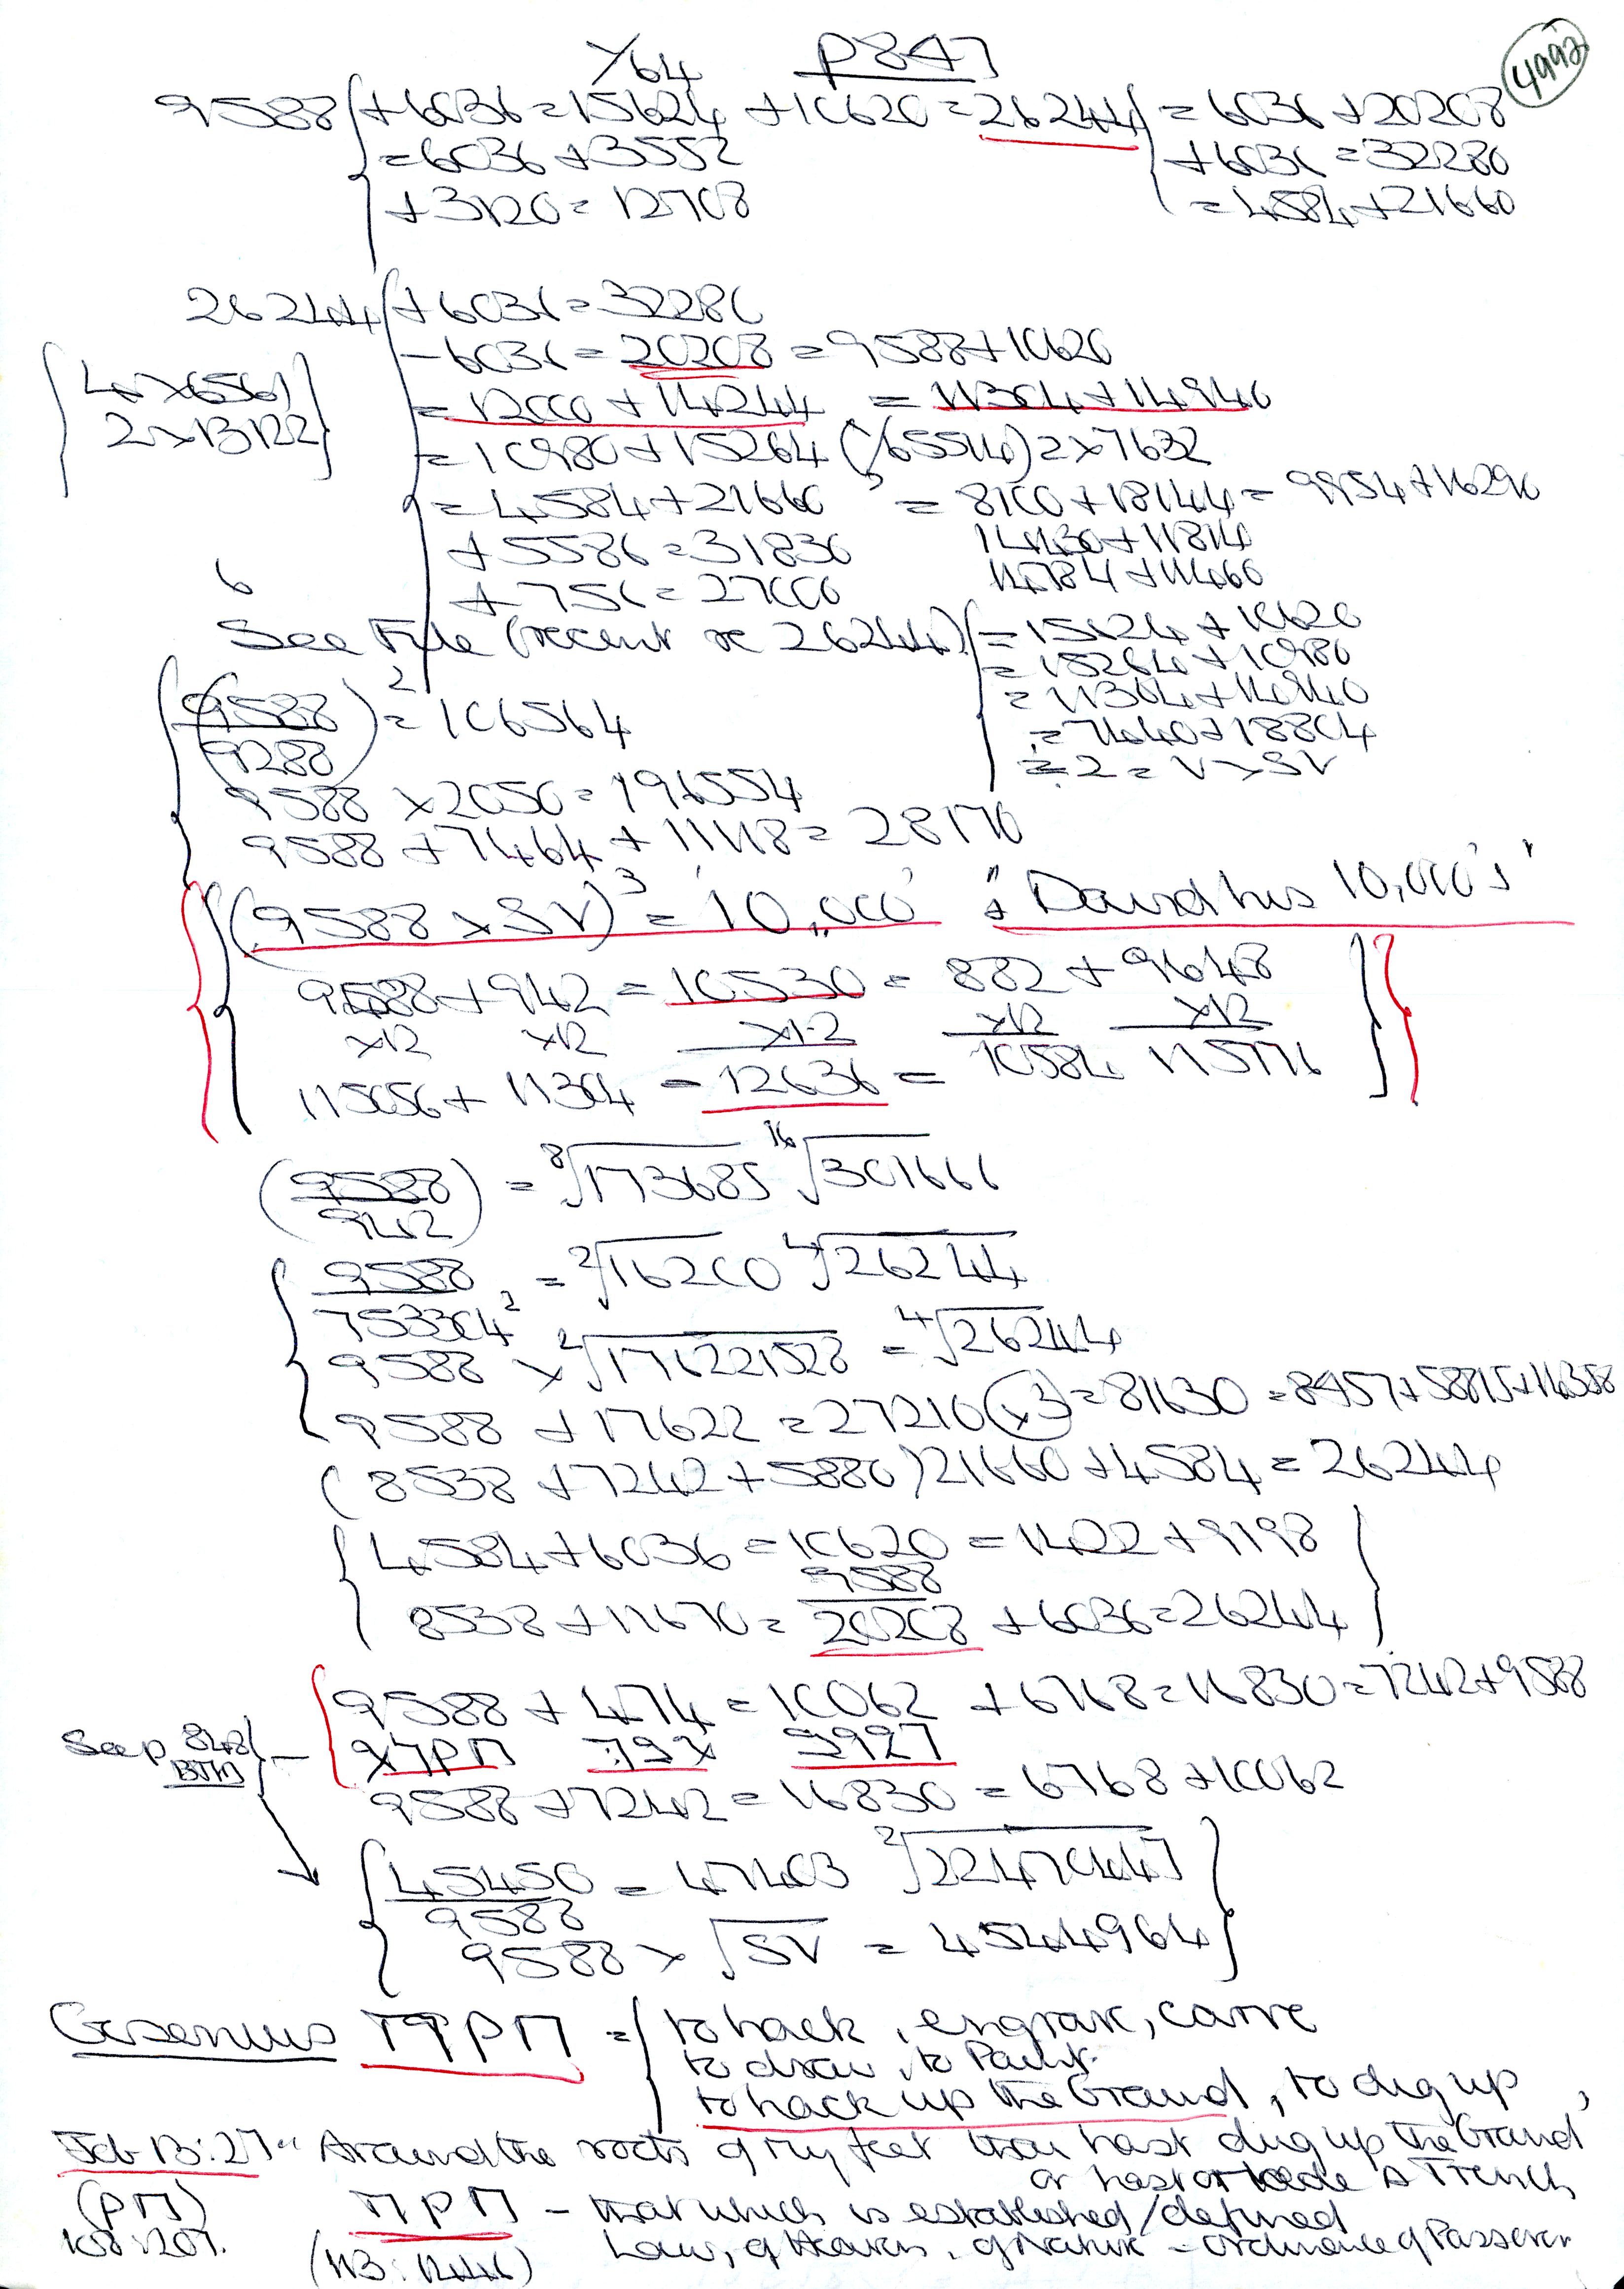 1/64 P847 4992
9588 +6036=15624 +10620=26244 =6036+20208
=6036+3552 +6036=32280
+3120=12708 =4584+21660
26244 +6036=32280
-6036=20208=9588+10620
4x6561 =12000+14244 =11304+14940
2x13122 =10980+15264 (1/65514)=x7632
=4584+21660 =8100+18144=9954+16290
+5586=31830 14430+11814
+756=27000 14784+11460
6
See File (recent re 26244) =15624+10620
=15264+10980
=11304+14940
(9588/9288)²=106564 =7440+18804
÷2=V×SV
9588×2050=196554
9588+7464+11118=28170
(9588×SV)³='10,000' "& David his 10,000's"
9588+942=10530=882+9648
×12 ×12 ×12 ×12 ×12
115056+11304=12636=10584 115776
(9588/942)=⁸√173685 ¹⁶√301666
9588/753304²=²√16200 ⁴√26244
9588×²√176221528=⁴√26244
9588+17622=27210(×3)=81630=8457+58815+14358
(8538+7242+5880)21660+4584=26244
4584+6036=10620=1422+9198
9588
8538+11670=20208+6036=26244
9588+474=10062+6768=16830=7242+9588
See p 848 BTM
9588+7242=16830=6768+10062
45450/9588=47403 ²√22470447
9588×√SV=4544964
Gesenius חקק = to hack, engrave, carve
to draw, to Paint.
to hack up the Ground, to dig up,
Job 13:27 "Around the roots of my feet thou hast dug up the Ground
or hast made a Trench
(חק) חקה - that which is established/defined
108:1207. (113:1446) Law, of Heaven, of Nature - ordinance of Passover